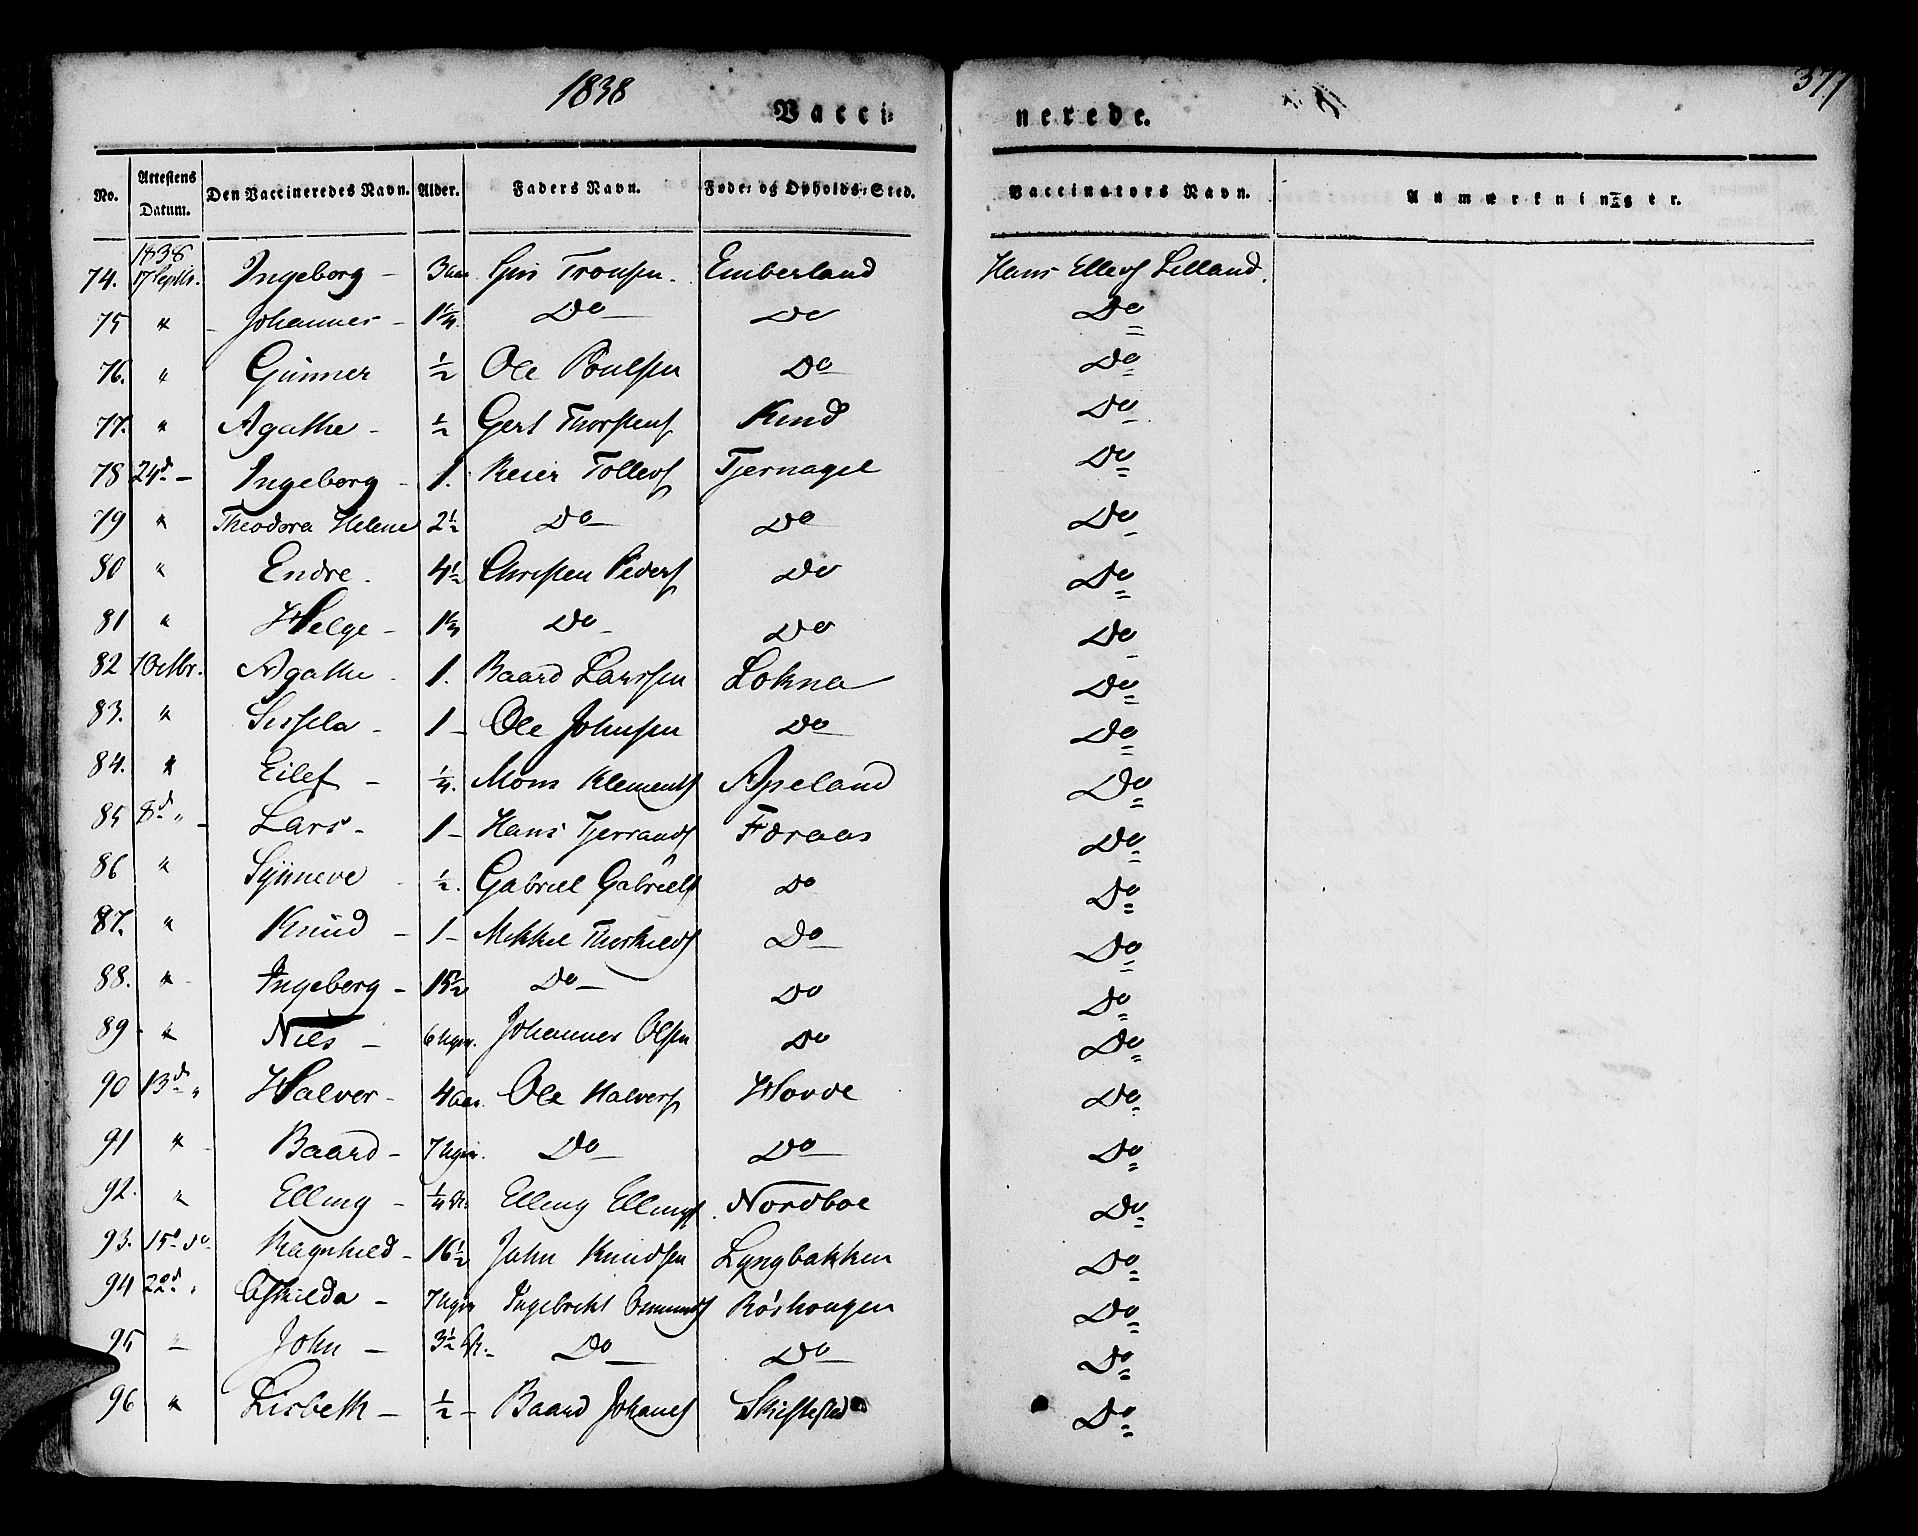 1838
377
Vacci: nerede.
No. Attestens Datum. Den Vaccineredes Navn. Alder. Faders Navn. Føde: og Opholds:Sted. Vaccinators Navn. Anmærkninger.
1838
74. 17 Septbr. Ingeborg - 3 aar Tronsen. Emberland Hans Ellevs Lilland.
75 " - Johannes - 1 1/4. Do Do Do
76. " Gunner 1/2 Ole Poulsen Do Do
77. " Agathe - 1/2 Gert Thorstens Do
78 24d - Ingeborg - 1. Reier Tollevs Tjernagel Do
79 " Theodora Helene 2 1/2 Do Do Do
80 " Endre. 4 1/2 Christen Peders Do Do
81 " Helge - Do Do Do
82 1 Octbr. Agathe - 1. Baard Larssen Lokna Do
83. " Sissela - 1 - Ole Johnsen Do Do
84. " Eilef - 1/4. Mons Klements Apeland Do
85 8d " - Lars - 1 - Hans Tjerrands Foraas Do
86 " Synneve - 1/2. Gabriel Gabriels Do Do
87. " Knud - 1 - Mikkel Thorkilds Do Do
88. " Ingeborg - Do Do Do
89 " Niels - 6 Ugr. Johannes Olsen Do Do
90 13d " Halver - 4 aar. Ole Halvers Hovde Do
91 " Baard - 7 Ugr. Do Do Do
92. " Elling - 1/4 Elling Ellings Nordboe Do
93. 15d do Ragnhild - 16 1/2 John Knudsen Lyngbakken Do
94 22d " Oshilda - 7 Ugr Ingebreht Osmunds Røshougen Do
95 " John - 3 1/2 Do Do Do
96 " Lisbeth - 1/2 - Baard Johanes Do